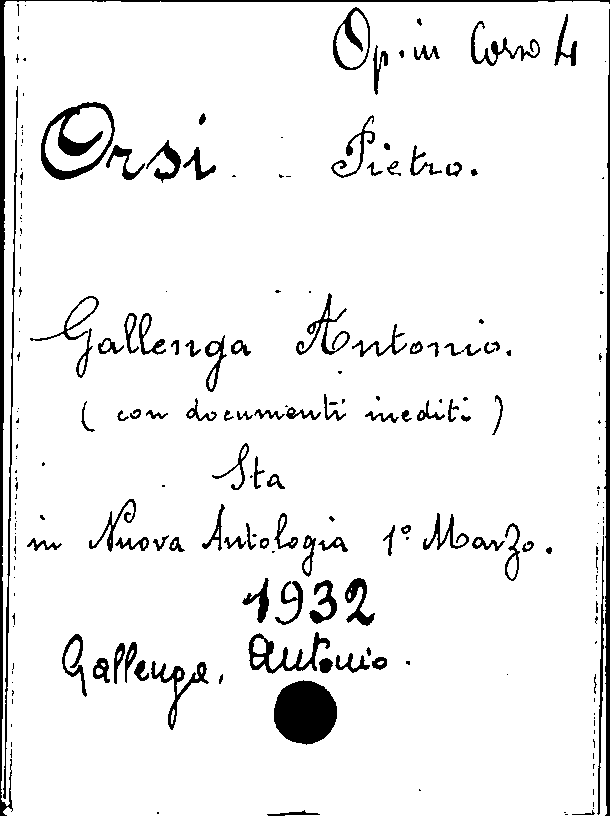 Op. in Corso 4
Orsi Pietro.
Gallenga Antonio.
( con documenti inediti )
Sta
in Nuova Antologia 1º Marzo.
1932
Gallenga, Antonio.